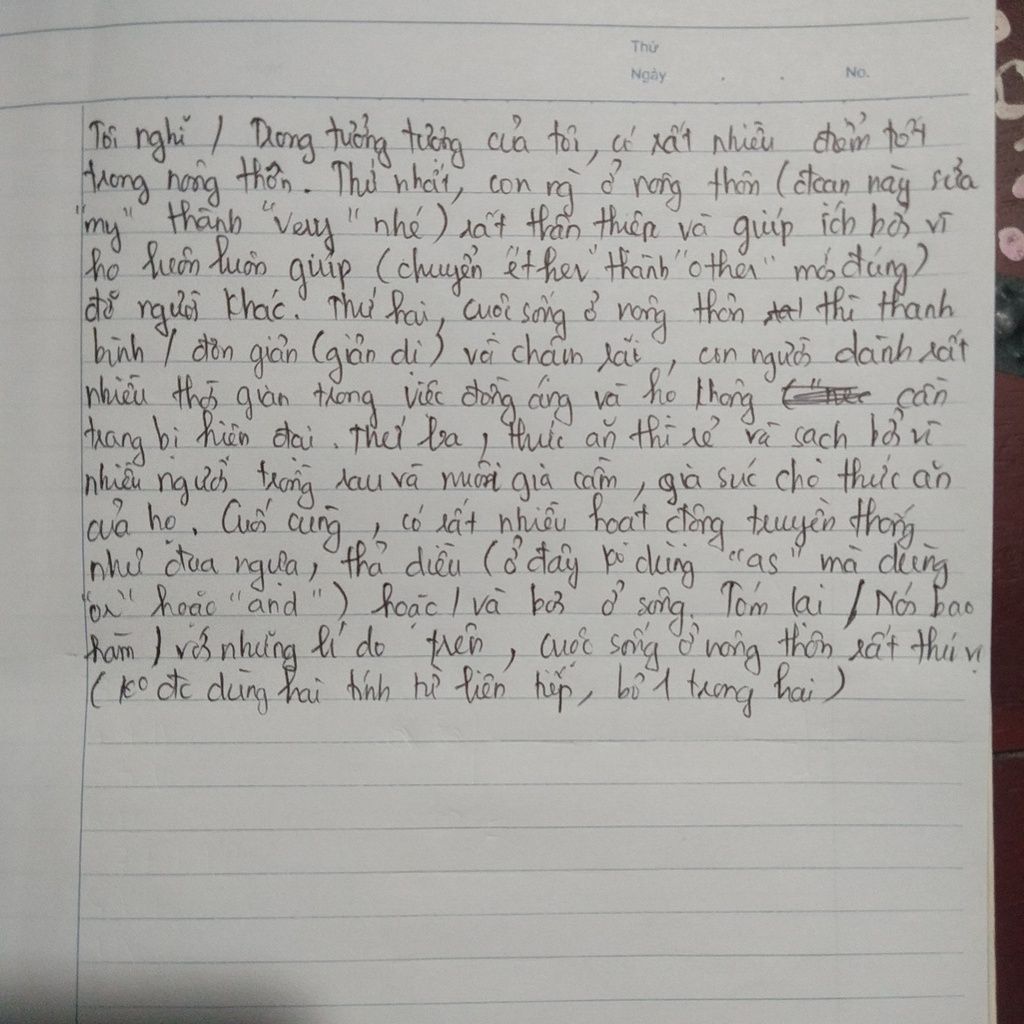 Thứ
Ngày . . No.
Tôi nghĩ / Trong tưởng tượng của tôi, có rất nhiều điểm tốt
trong nông thôn. Thứ nhất, con ng ở nông thôn (đoạn này sửa
"my" thành "very" nhé) rất thân thiện và giúp ích bởi vì
họ luôn luôn giúp (chuyển "ether" thành "other" mới đúng)
đỡ người khác. Thứ hai, cuộc sống ở nông thôn thì thanh
bình / đơn giản (giản dị) và chậm rãi, con người dành rất
nhiều thời gian trong việc đồng áng và họ không cần
trang bị hiện đại. Thứ ba, thức ăn thì rẻ và sạch bởi vì
nhiều người trồng rau và nuôi gia cầm, gia súc cho thức ăn
của họ. Cuối cùng, có rất nhiều hoạt động truyền thống
như đua ngựa, thả diều (ở đây ko dùng "as" mà dùng
"or" hoặc "and") hoặc / và bơi ở sông. Tóm lại / Nói bao
hàm / với những lí do trên, cuộc sống ở nông thôn rất thú vị
(ko đc dùng hai tính từ liên tiếp, bỏ 1 trong hai)